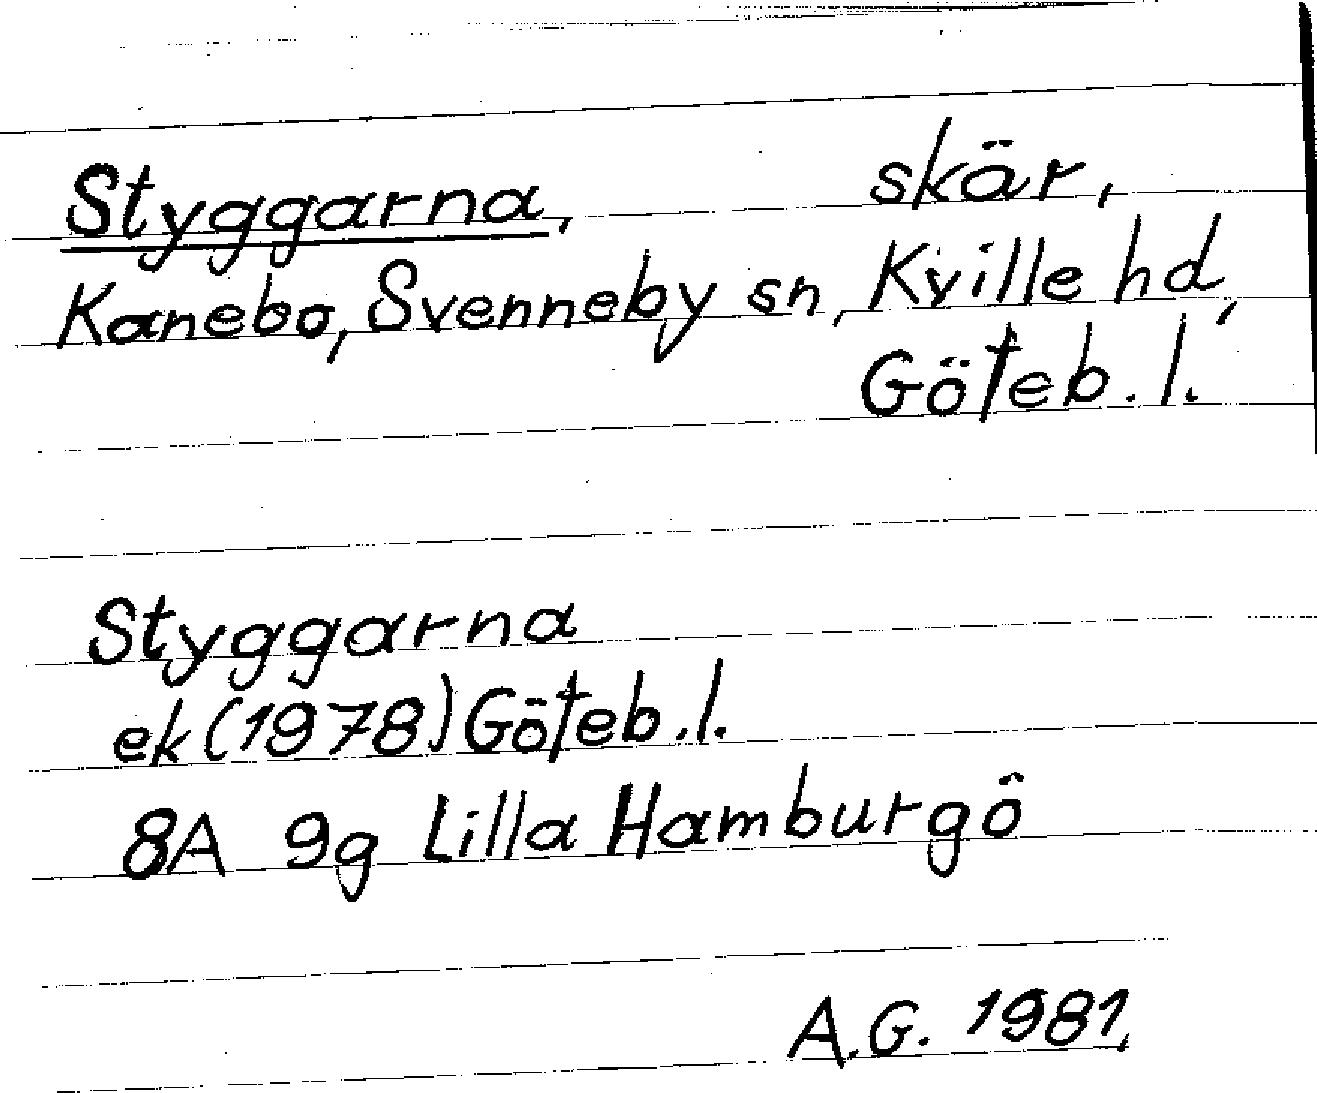 Styggarna, skär,
Kanebo, Svenneby sn, Kville hd,
Göteb. l.
Styggarna
ek (1978) Göteb. l.
8A 9g Lilla Hamburgö
A.G. 1981.